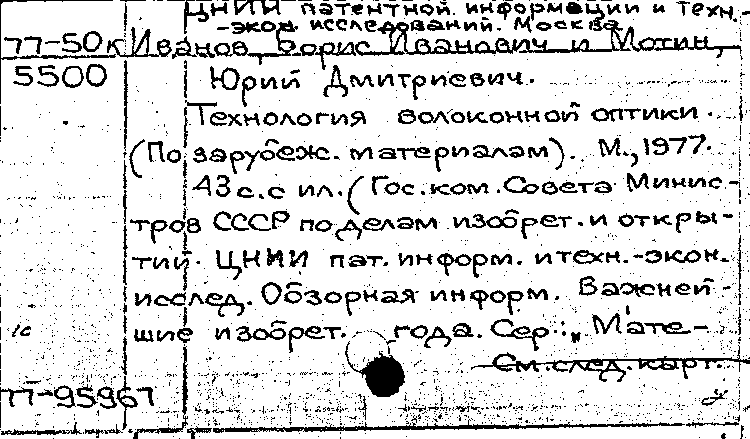 ЦНИИ патентной информации и техн.-
-экон. исследований. Москва
77-50к Иванов, Борис Иванович и Мотин,
5500 Юрий Дмитриевич.
Технология волоконной оптики.
(По зарубеж. материалам). М., 1977.
43 с. с ил. (Гос. ком. Совета Минис-
тров СССР по делам изобрет. и откры-
тий. ЦНИИ пат. информ. и техн.-экон.
исслед. Обзорная информ. Важней-
1с шие изобрет. года. Сер.: „Мате-
См. след. карт.
77-95967